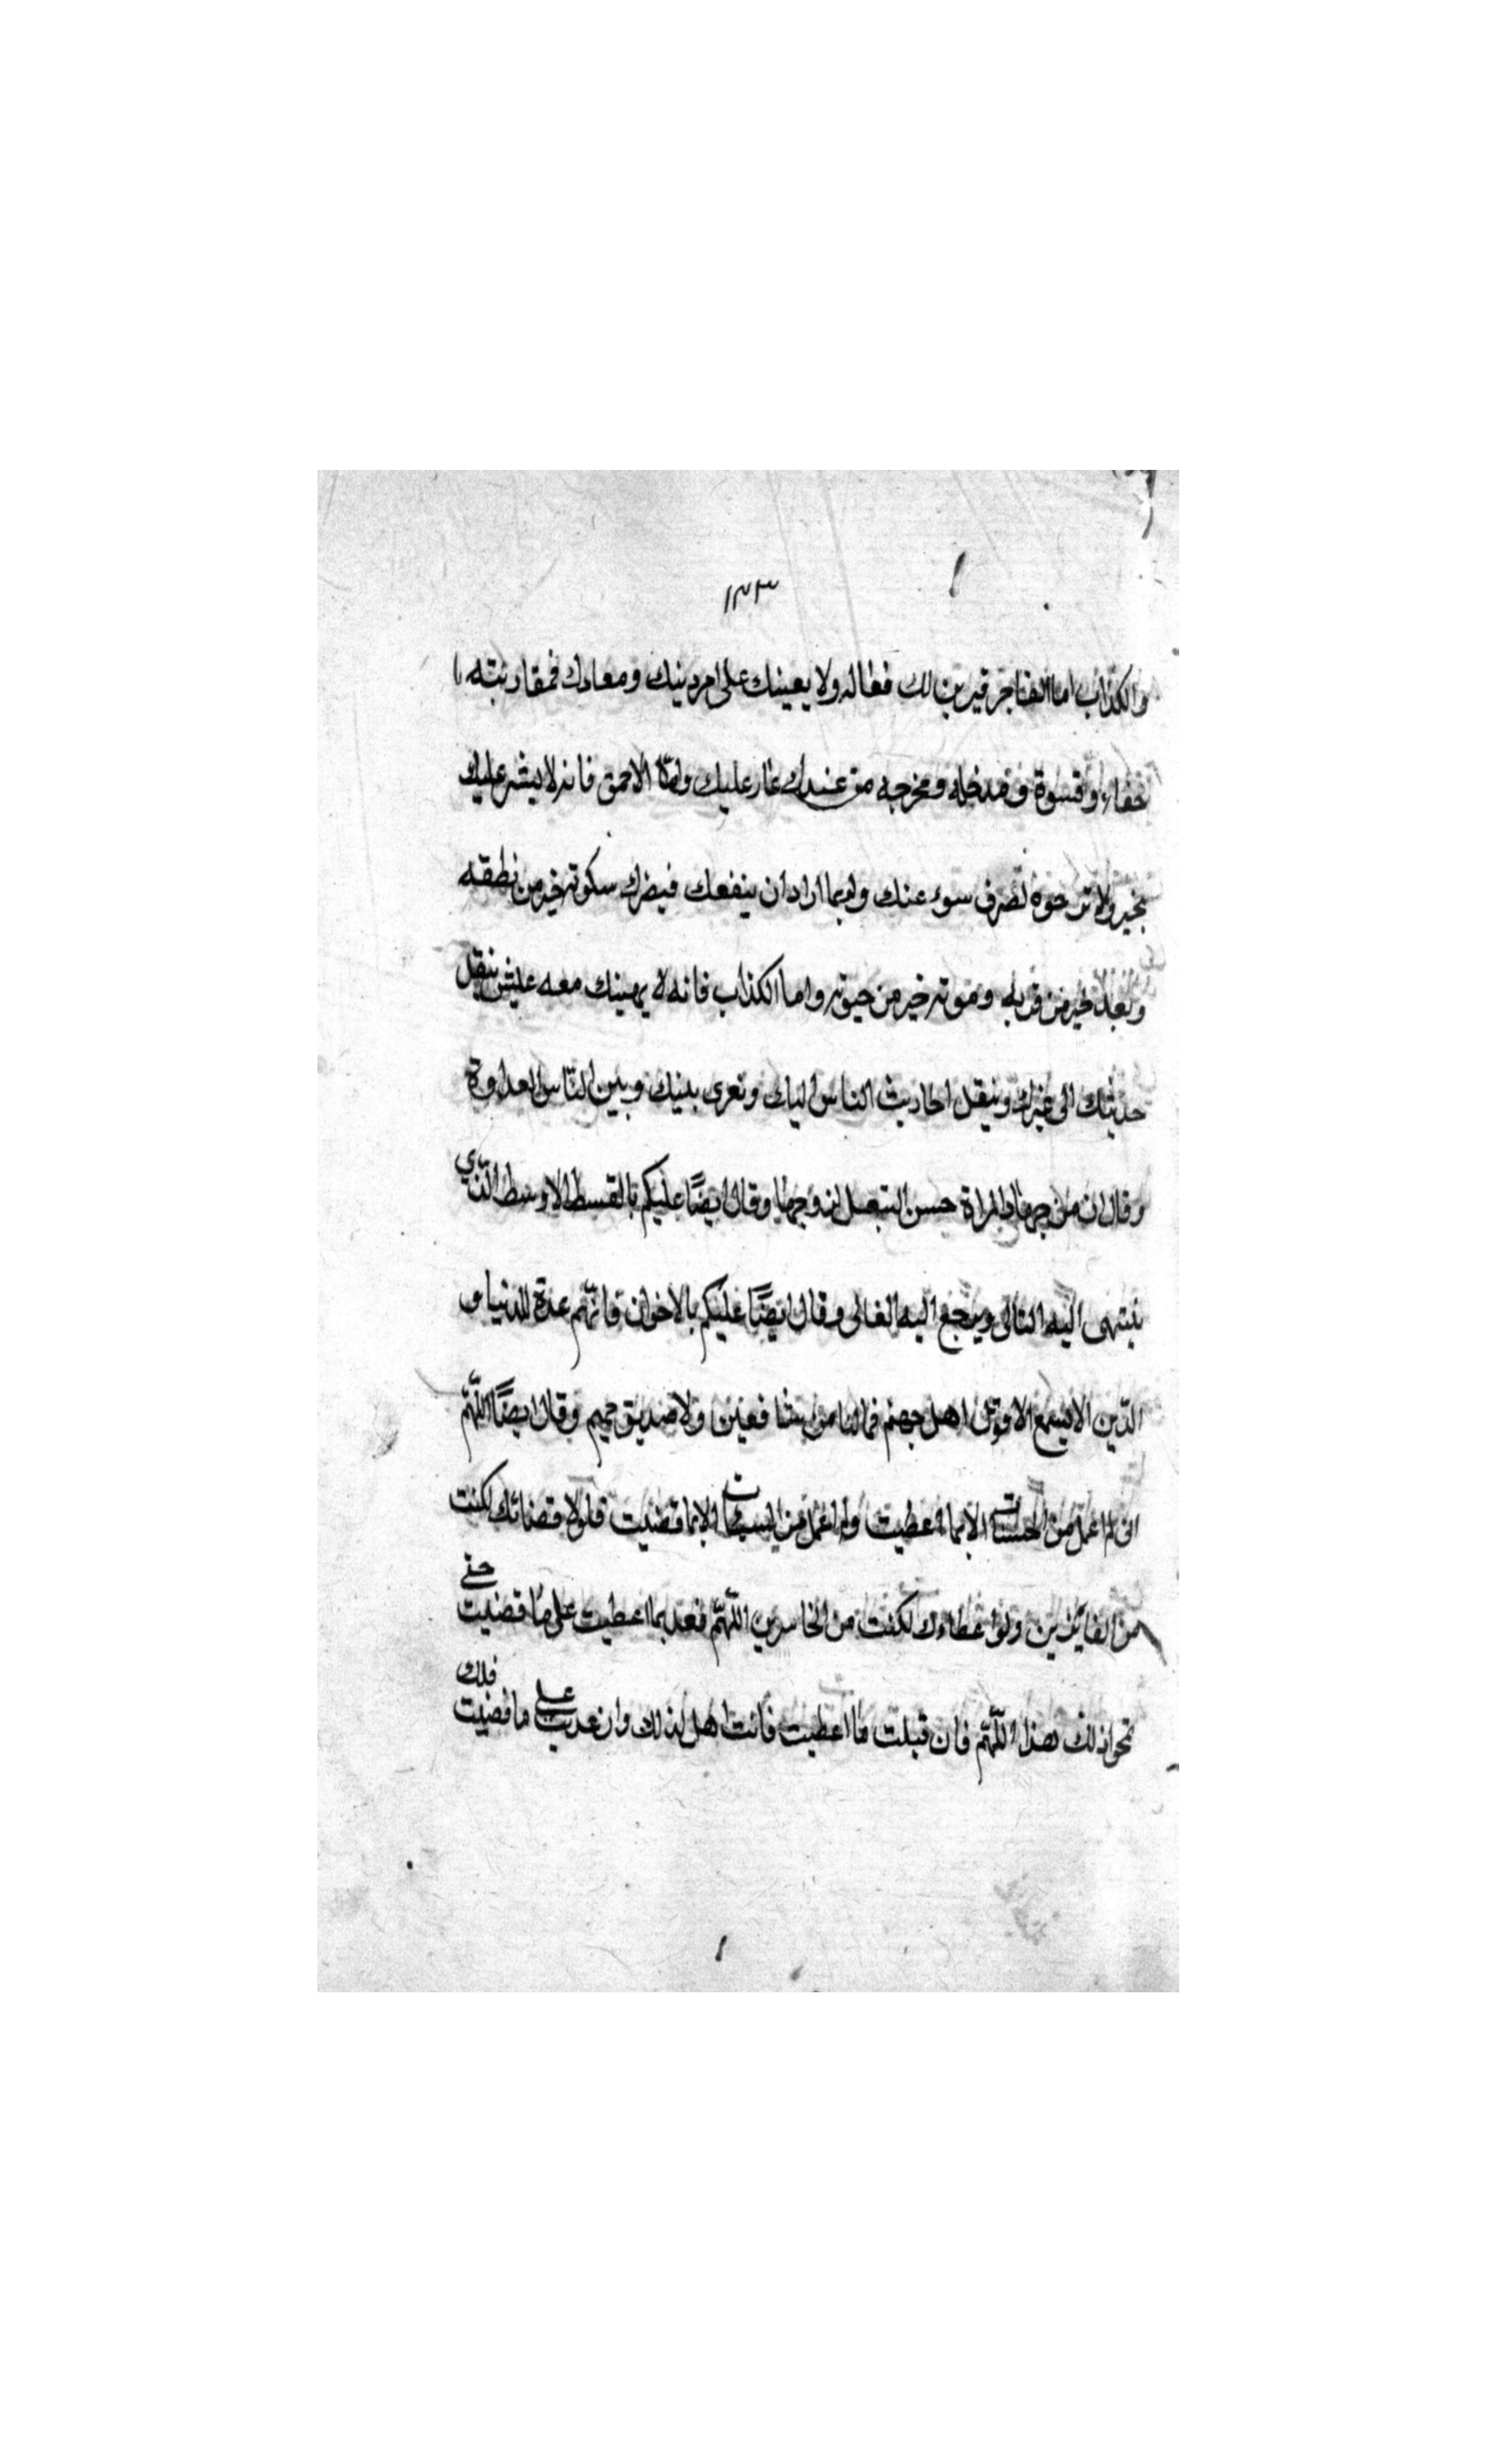 ١٣٣
والكذاب اما الفاجر فيزين لك فعاله ولا يعينك على امر دينك ومعادك فمقارنته
جفاء وقسوة ومدخله ومخرجه من عندك عار عليك واما الاحمق فانه لا يشر عليك
بخير ولا ترجوه لصرف سوء عنك ولربما اراد ان ينفعك فيضرك سكوته خير من نطقه
وبعده خير من قربه وموته خير من حيوته واما الكذاب فانه لا يهينك معه عيش ينقل
حديثك الى غيرك وينقل احاديث الناس اليك ونغرى بينك وبين النّاس العداوة
وقال ان من جهاد المراة حسن التبعل لزوجها وقال ايضًا عليكم بالقسط الاوسط الّذي
ينتهى اليه التالى ويرجع اليه الغالى وقال ايضًا عليكم بالاخوان فانّهم عدة للدنيا و
الدّين الا يسمع الا قول اهل جهنم فما لنا من شافعين ولا صديق حميم وقال ايضًا اللّهمّ
انى لم اعمل من الحسنات الا بما اعطيت ولم اعمل من السيئات الا بما قضيت فلولا قضائك لكنت
من الفائزين ولولا عطاءك لكنت من الخاسرين اللّهمّ فعد بما اعطيت على ما قضيت حتى
تمحو ذلك بهذا اللّهمّ فان قبلت ما اعطيت فانت اهل لذلك وان عذبت على ما قضيت فلك